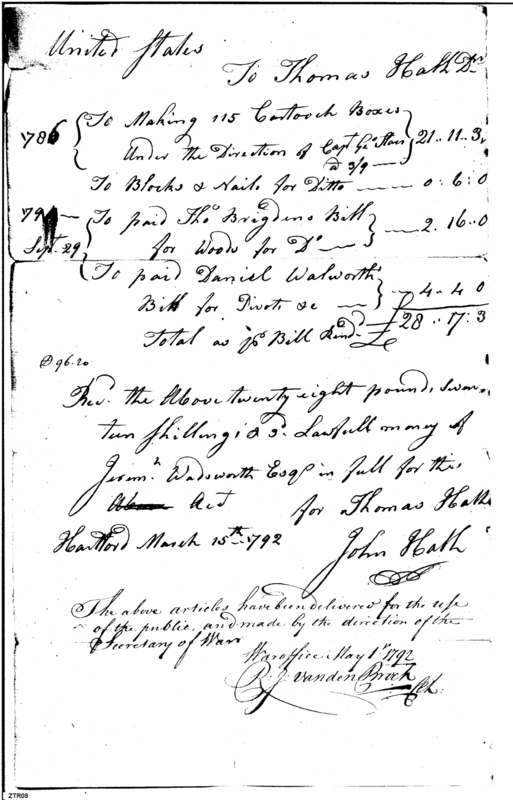 United States
To Thomas Hath Dr
1786 To Making 115 Cartooch Boxes
Under the Direction of Capt Geo Starr
a 3/9 — 21..11..3
To Blocks & Nails for Ditto — 0:6:0
179 — To paid Thos Brigdens Bill
Sept. 29 for Woods for Do — 2..16..0
To paid Daniel Walworths
Bill for Pivots &c — 4..4 0
Total as pr Bill Rend £28..17:3
D 96.20
Recd. the Above twenty eight pound, seven
teen Shillings & 3d. Lawfull money of
Jeremh. Wadsworth Esqr in full for the
Act for Thomas Hath
Hartford March 15th 1792
John Hath
The above articles have been delivered for the use
of the public, and made by the direction of the
Secretary of Warr
War office May 1st 1792
R. J. Vanden Broek
Clk.
ZTR09